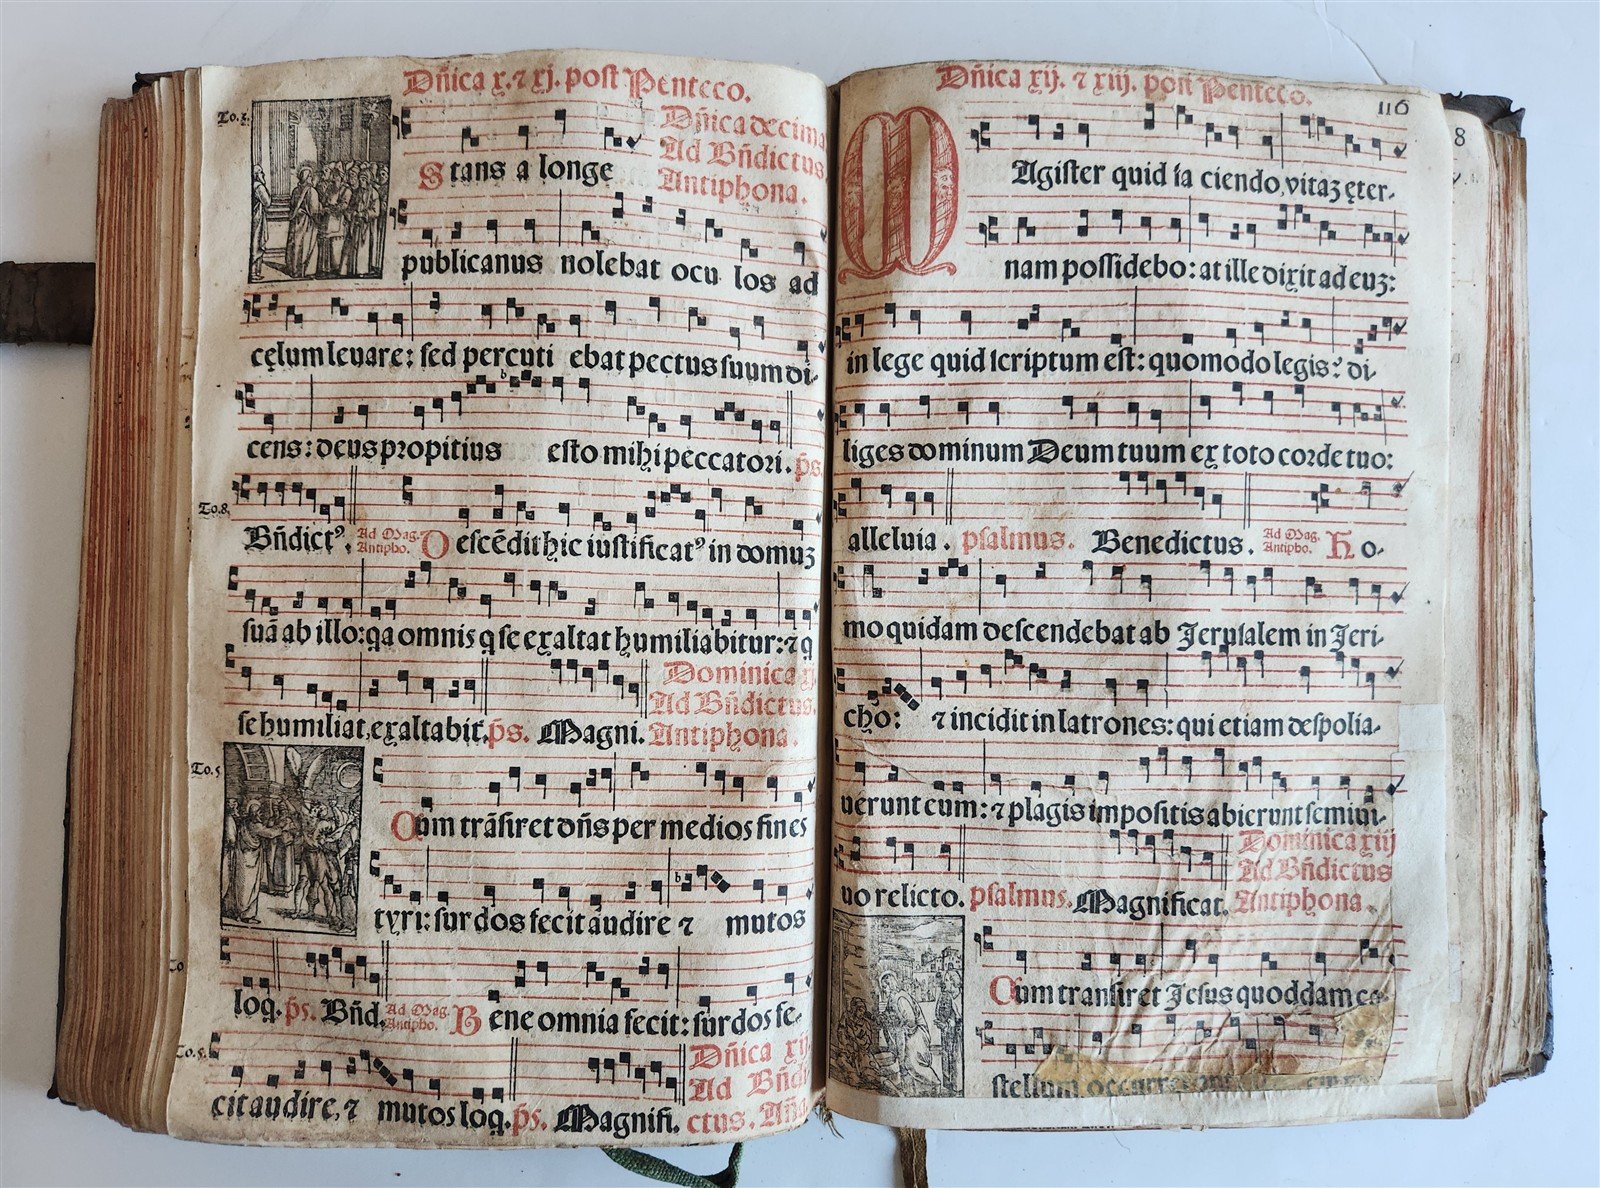 Dñica x. ⁊ xj. post Penteco.
To.
Dñica decima
Ad Bñdictus
Antiphona.
Stans a longe
publicanus nolebat ocu los ad
cęlum leuare: sed percuti ebat pectus suum di-
cens: deus propitius esto mihi peccatori. p̃s.
To.8.
Bñdictꝰ. Ad Mag. Antipho. Descẽdit hic iustificatꝰ in domuz
suã ab illo: qa omnis q se exaltat humiliabitur: ⁊ q
se humiliat, exaltabit̃. p̃s. Magni.
Dominica xj.
Ad Bñdictus.
Antiphona.
To.5
Cum trãsiret dñs per medios fines
tyri: surdos fecit audire ⁊ mutos
loq. p̃s. Bñd. Ad Mag. Antipho. Bene omnia fecit: surdos fe-
To.5.
cit audire, ⁊ mutos loq. p̃s. Magnifi.
Dñica xij
Ad Bñdi
ctus. Aña.
Dñica xij. ⁊ xiij. post Penteco.
116
8
MAgister quid fa ciendo, vitaz ęter-
nam possidebo: at ille dixit ad euz:
in lege quid scriptum est: quomodo legis? di-
liges dominum Deum tuum ex toto corde tuo:
alleluia. psalmus. Benedictus. Ad Mag. Antipho. Ho-
mo quidam descendebat ab Jerusalem in Jeri-
cho: ⁊ incidit in latrones: qui etiam despolia-
uerunt eum: ⁊ plagis impositis abierunt semiui-
uo relicto. psalmus. Magnificat.
Dominica xiij
Ad Bñdictus
Antiphona.
Cum transiret Jesus quoddam ca-
stellum occurrerunt